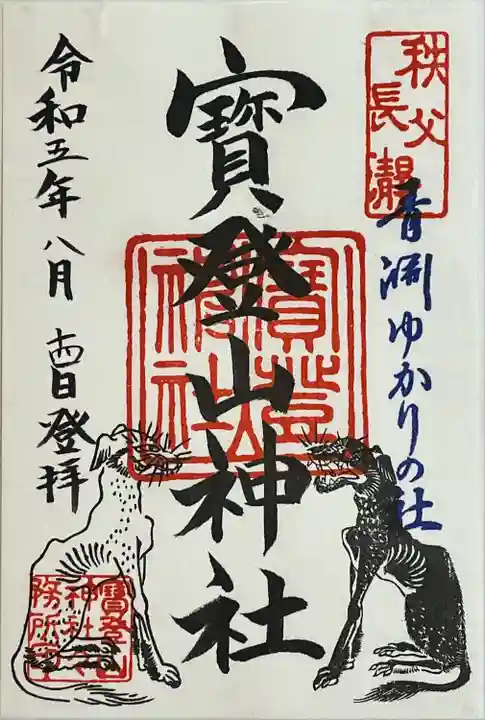 秩父
長瀞
青淵ゆかりの社
寶登山神社
寶登山
神社
令和五年八月十四日登拝
寶登山
神社社
務所印